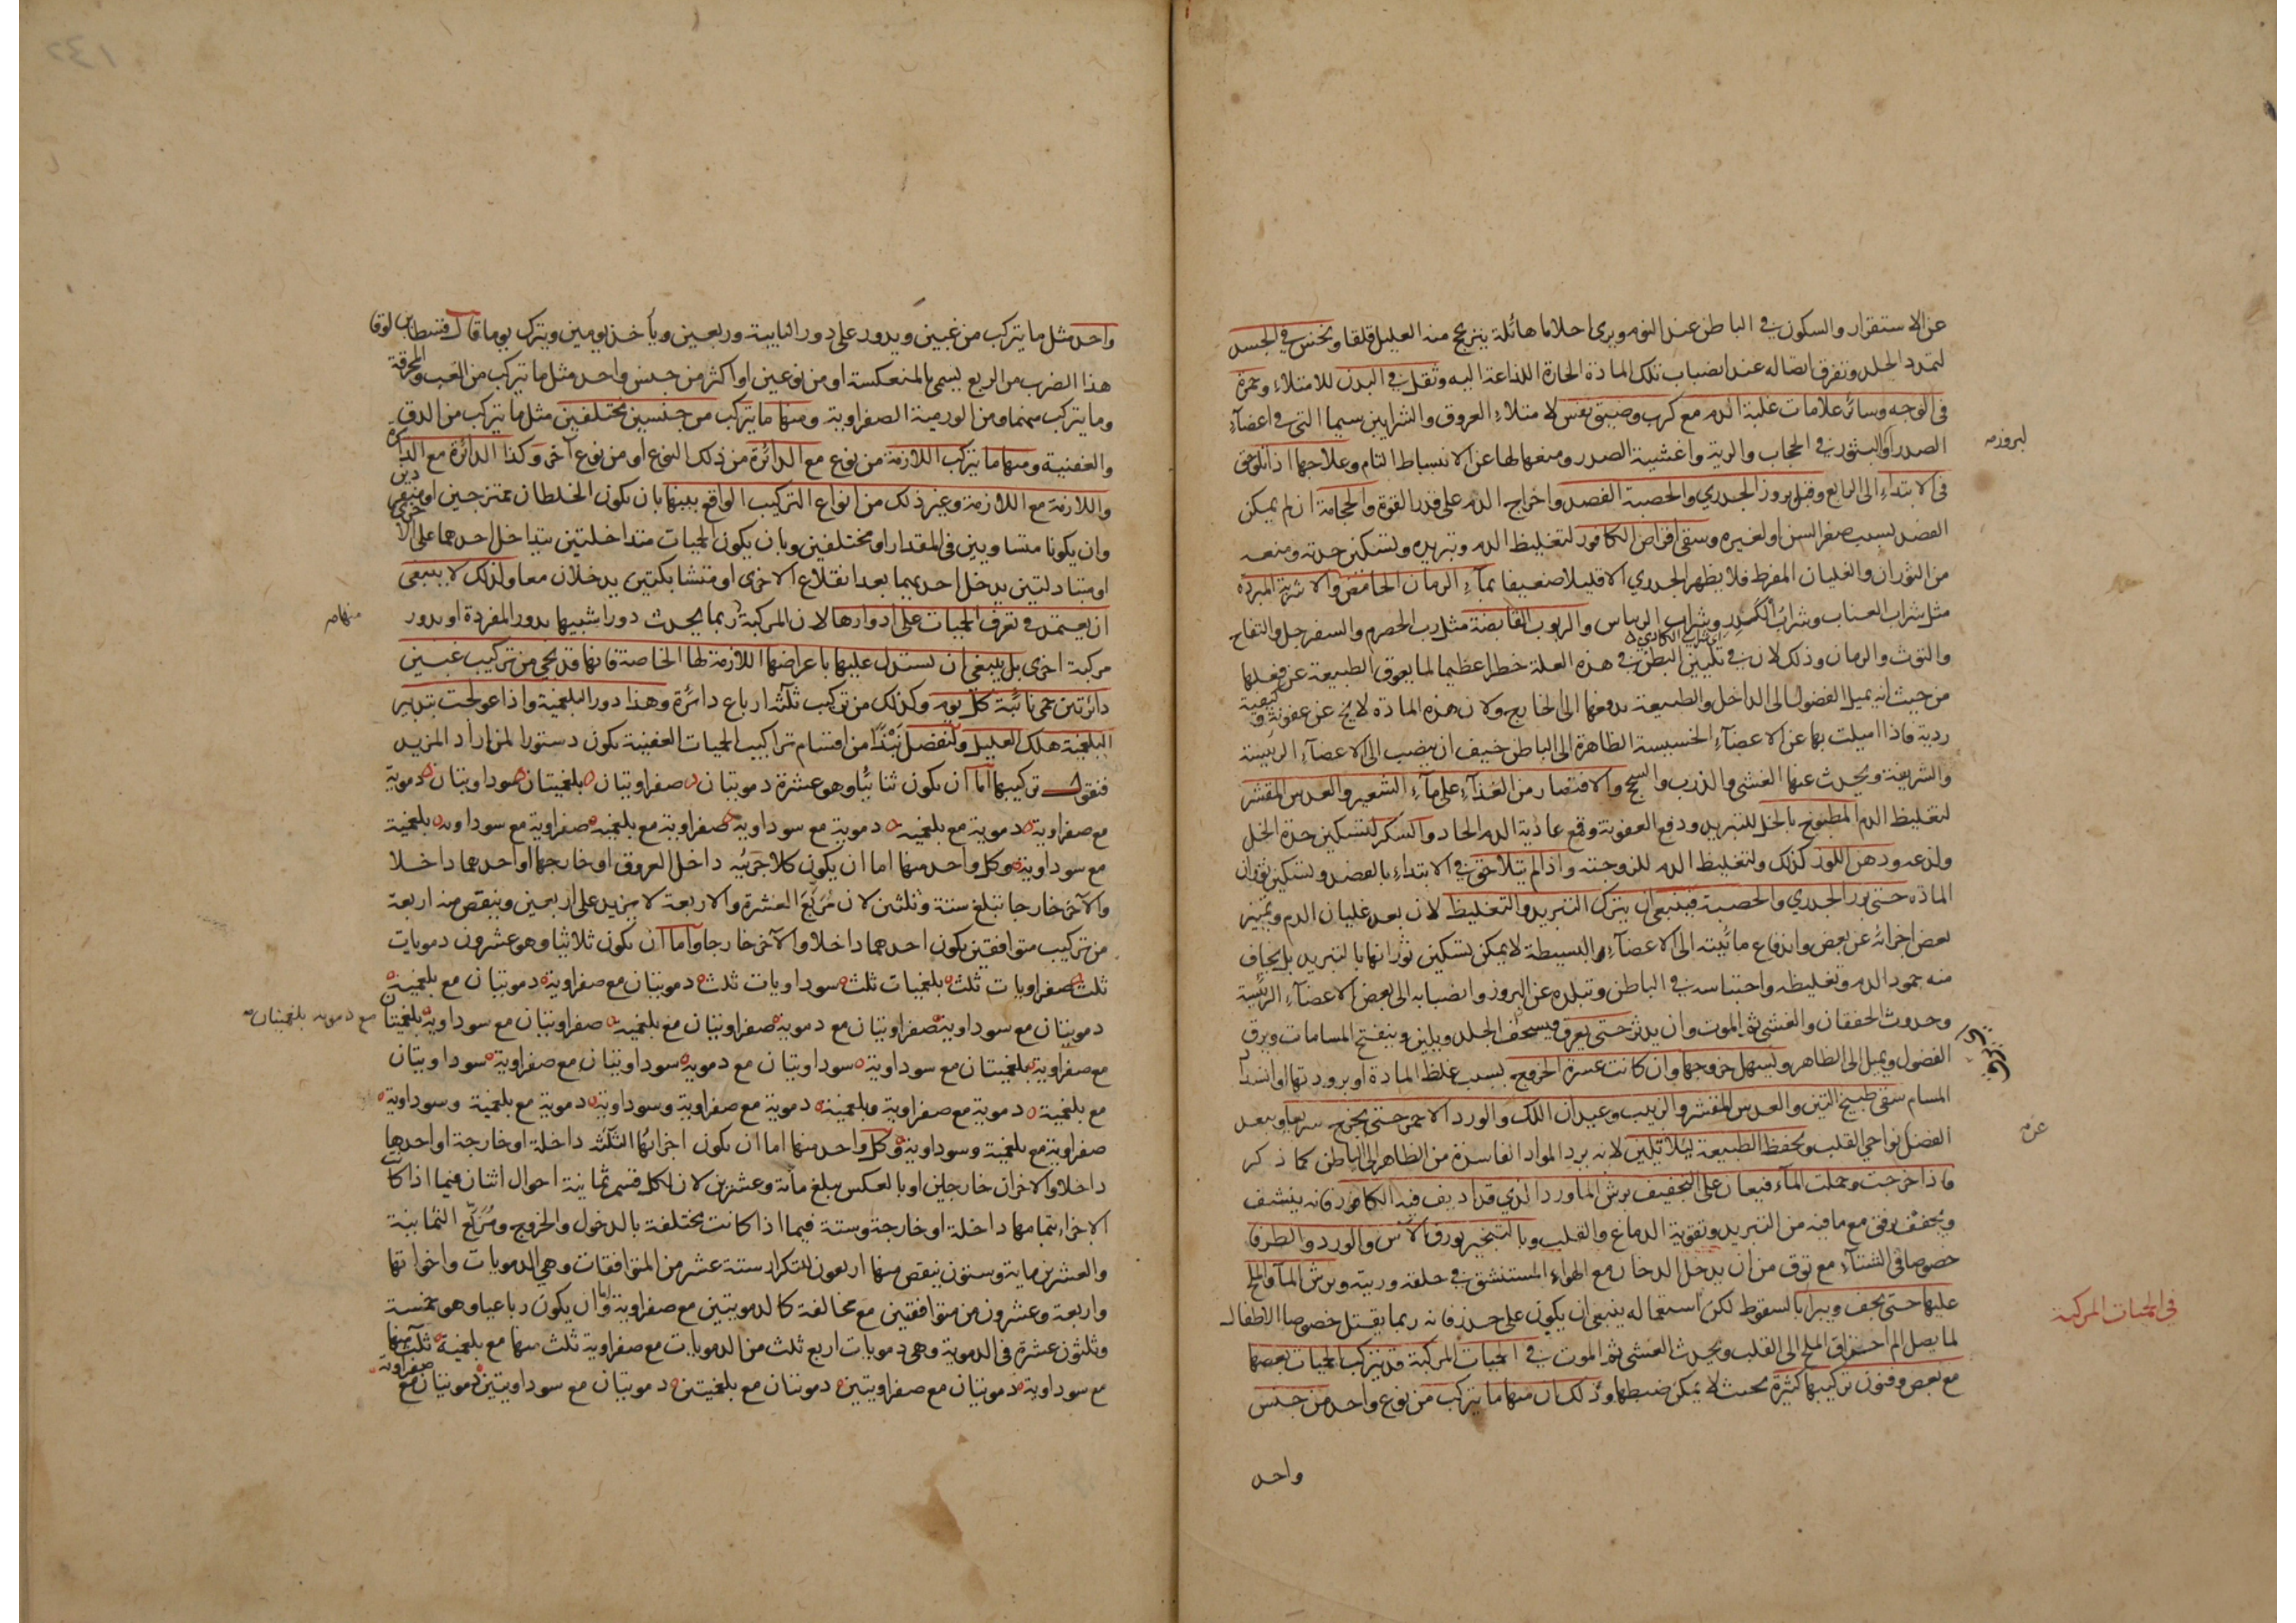 عن الاستقرار والسكون في الباطن عند النوم ويرى احلاما هائلة ينزعج منه العليل قلقا ونخس في الجسد
لتمدد الجلد وتفرق اتصاله عند انصباب تلك المادة الحارة اللذاعة اليه وثقل في البدن للامتلاء وحمرة
في الوجه وسائر علامات غلبة الدم مع كرب وضيق نفس لامتلاء العروق والشرايين سيما التي في اعضاء
الصدر او البثور في الحجاب والرية واغشية الصدر ومنعها لها عن الانبساط التام وعلاجها اذا تلوحق
لبروزه
في الابتداء الى الرابع وقبل بروز الجدري والحصبة الفصد واخراج الدم على قدر القوة والحجامة ان لم يمكن
الفصد بسبب صغر السن او لغيره وسقي اقراص الكافور لتغليظ الدم وتبريده وتسكين حدته ومنعه
من الثوران والغليان المفرط فلا يظهر الجدري الا قليلا ضعيفا بماء الرمان الحامض والاشربة المبردة
مثل شراب العناب وشراب الكدر وشراب الريباس والربوب القابضة مثل رب الحصرم والسفرجل والتفاح
والتوت والرمان وذلك لان في تليين البطن في هذه العلة خطرا عظيما لما يعوق الطبيعة عن فعلها
من حيث انه يميل الفضول الى الداخل والطبيعة تدفعها الى الخارج ولان هذه المادة لا يخ عن عفونة وكيفية
ردية فاذا اميلت بها عن الاعضاء الخسيسة الظاهرة الى الباطن خيف ان ينصب الى الاعضاء الرئيسة
والشريفة ويحدث عنها الغشي والذرب والسحج والاقتصار من الغذاء على ماء الشعير والعدس المقشر
لتغليظ الدم المطبوخ بالخل للتبريد ودفع العفونة وقمع عادية الدم الحاد والسكر لتسكين حدة الخل
ولذعه ودهن اللوز كذلك ولتغليظ الدم للزوجته واذا لم يتلاحق في الابتداء بالفصد وتسكين ثوران
المادة حتى بدر الجدري والحصبة فينبغي ان يترك التبريد والتغليظ لان بعد غليان الدم وتميز
بعض اجزائه عن بعض واندفاع مائيته الى الاعضاء البسيطة لا يمكن تسكين ثورانها بالتبريد بل يخاف
منه جمود الدم وتغليظه واحتباسه في الباطن وتبلده عن البروز وانصبابه الى بعض الاعضاء الرئيسة
وحدوث الخفقان والغشي ثم الموت وان يدثر حتى يعرق ويسخف الجلد ويلين وينفتح المسامات ويرق
الفضول ويميل الى الظاهر ويسهل خروجها وان كانت عسرة الخروج بسبب غلظ المادة او برودتها او انسداد
المسام سقي طبيخ التين والعدس المقشر والزبيب وعيدان اللك والورد الاحمر حتى يخرج سريعا ويبعد
الفضل نواحي القلب ويحفظ الطبيعة ليلا تلين لانه يرد المواد الفاسدة من الظاهر الى الباطن كما ذكر
عن
فاذا خرجت وحملت الماء فيعان على التجفيف برش الماورد الذي قد اديف فيه الكافور فانه ينشف
ويجفف برفق مع ما فيه من التبريد وتقوية الدماغ والقلب وبالتبخير بورق الآس والورد والطرفا
خصوصا في الشتاء مع توق من ان يدخل الدخان مع الهواء المستنشق في حلقه وريته وبرش الماء والملح
عليها حتى يجف ويبرأ بالسقوط لكن استعماله ينبغي ان يكون على حذر فانه ربما يقتل خصوصا الاطفال
في الحميات المركبة
لما يصل الم احتراق الملح الى القلب ويحدث الغشي ثم الموت في الحميات المركبة قد يتركب الحميات بعضها
مع بعض وفنون تركيبها كثيرة بحيث لا يمكن ضبطها وذلك ان منها ما يتركب من نوع واحد من جنس
واحد
واحد مثل ما يتركب من غبين ويدور على دور النايبة وربعين ويأخذ يومين ويترك يوما قال قسطا بن لوقا
هذا الضرب من الربع يسمى بالمنعكسة او من نوعين او اكثر من جنس واحد مثل ما يتركب من الغب والمحرقة
وما يتركب منهما ومن الورمية الصفراوية ومنها ما يتركب من جنسين مختلفين مثل ما يتركب من الدق
والعفنية ومنها ما يتركب اللازمة من نوع مع الدائرة من ذلك النوع او من نوع آخر وكذا الدائرة مع الدائرة
واللازمة مع اللازمة وغير ذلك من انواع التركيب الواقع بينها بان يكون الخلطان ممتزجين او منفردين
وان يكونا متساويين في المقدار او مختلفين وبان يكون الحميات متداخلتين يتداخل احدهما على الاخرى
او متبادلتين يدخل احديهما بعد انقلاع الاخرى او متشابكتين يدخلان معا ولذلك لا ينبغي
ان يعتمد في تعرف الحميات على ادوارها لان المركبة ربما يحدث دورا شبيها بدور المفردة او بدور
مركبة اخرى بل ينبغي ان يستدل عليها باعراضها اللازمة لها الخاصة فانها قد يجي من تركيب غبين
دائرتين حمى نائبة كل يوم وكذلك من تركيب ثلثة ارباع دائرة وهذا دور البلغمية واذا عولجت بتدبير
البلغمية هلك العليل ولنفصل نبذا من اقسام تراكيب الحميات العفنية يكون دستورا لمن اراد المزيد
فنقول تركيبها اما ان يكون ثنائيا وهو عشرة دمويتان صفراويتان بلغميتان سوداويتان دموية
مع صفراوية دموية مع بلغمية دموية مع سوداوية صفراوية مع بلغمية صفراوية مع سوداوية بلغمية
مع سوداوية وكل واحد منها اما ان يكون كلا جزئيه داخل العروق او خارجها او احدهما داخلا
والآخر خارجا تبلغ ستة وثلثين لان مربع العشرة والاربعة لا يزيد على اربعين وينقص منه اربعة
من تركيب متوافقين يكون احدهما داخلا والآخر خارجا واما ان يكون ثلاثيا وهو عشرون دمويات
ثلث صفراويات ثلث بلغميات ثلث سوداويات ثلث دمويتان مع صفراوية دمويتان مع بلغمية
دمويتان مع سوداوية صفراويتان مع دموية صفراويتان مع بلغمية صفراويتان مع سوداوية بلغميتان
مع دمويه بلغميتان
مع صفراوية بلغميتان مع سوداوية سوداويتان مع دموية سوداويتان مع صفراوية سوداويتان
مع بلغمية دموية مع صفراوية وبلغمية دموية مع صفراوية وسوداوية دموية مع بلغمية وسوداوية
صفراوية مع بلغمية وسوداوية وكل واحد منها اما ان يكون اجزائها الثلثة داخلة او خارجة او احدها
داخلا والاخران خارجين او بالعكس يبلغ مائة وعشرين لان لكل قسم ثمانية احوال اثنان فيما اذا كانت
الاجزاء بتمامها داخلة او خارجة وستة فيما اذا كانت مختلفة بالدخول والخروج ومربع الثمانية
والعشرين ماية وستون ينقص منها اربعون للتكرار ستة عشر من المتوافقات وهي الدمويات واخواتها
واربعة وعشرون من متوافقين مع مخالفة كالدمويتين مع صفراوية واما ان يكون رباعيا وهو خمسة
وثلثون عشرة في الدموية وهي دمويات اربع ثلث من الدمويات مع صفراوية ثلث منها مع بلغمية ثلث منها
مع سوداوية دمويتان مع صفراويتين دمويتان مع بلغميتين دمويتان مع سوداويتين دمويتان مع صفراوية